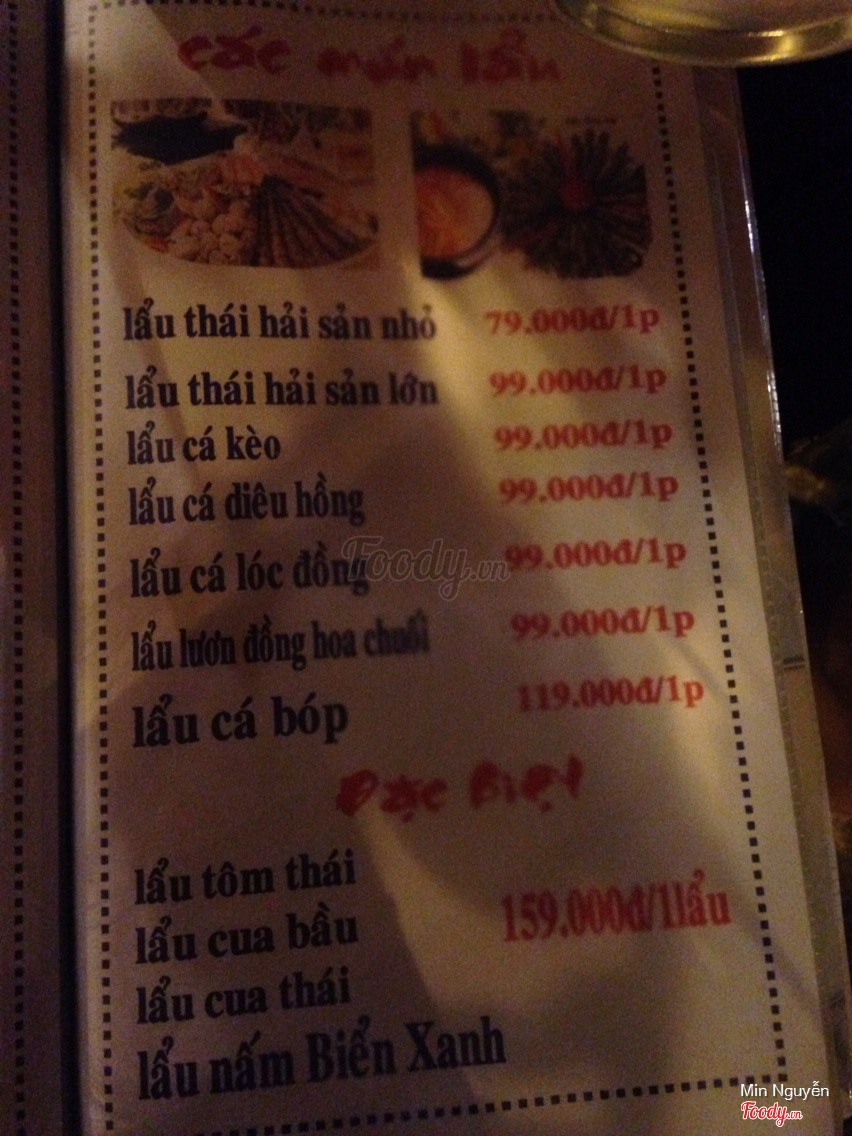 các món lẩu
lẩu thái hải sản nhỏ 79.000đ/1p
lẩu thái hải sản lớn 99.000đ/1p
lẩu cá kèo 99.000đ/1p
lẩu cá diêu hồng 99.000đ/1p
lẩu cá lóc đồng 99.000đ/1p
Foody.vn
lẩu lươn đồng hoa chuối 99.000đ/1p
lẩu cá bóp 119.000đ/1p
Đặc Biệt
lẩu tôm thái
lẩu cua bầu 159.000đ/1lẩu
lẩu cua thái
lẩu nấm Biển Xanh
Min Nguyễn
Foody.vn